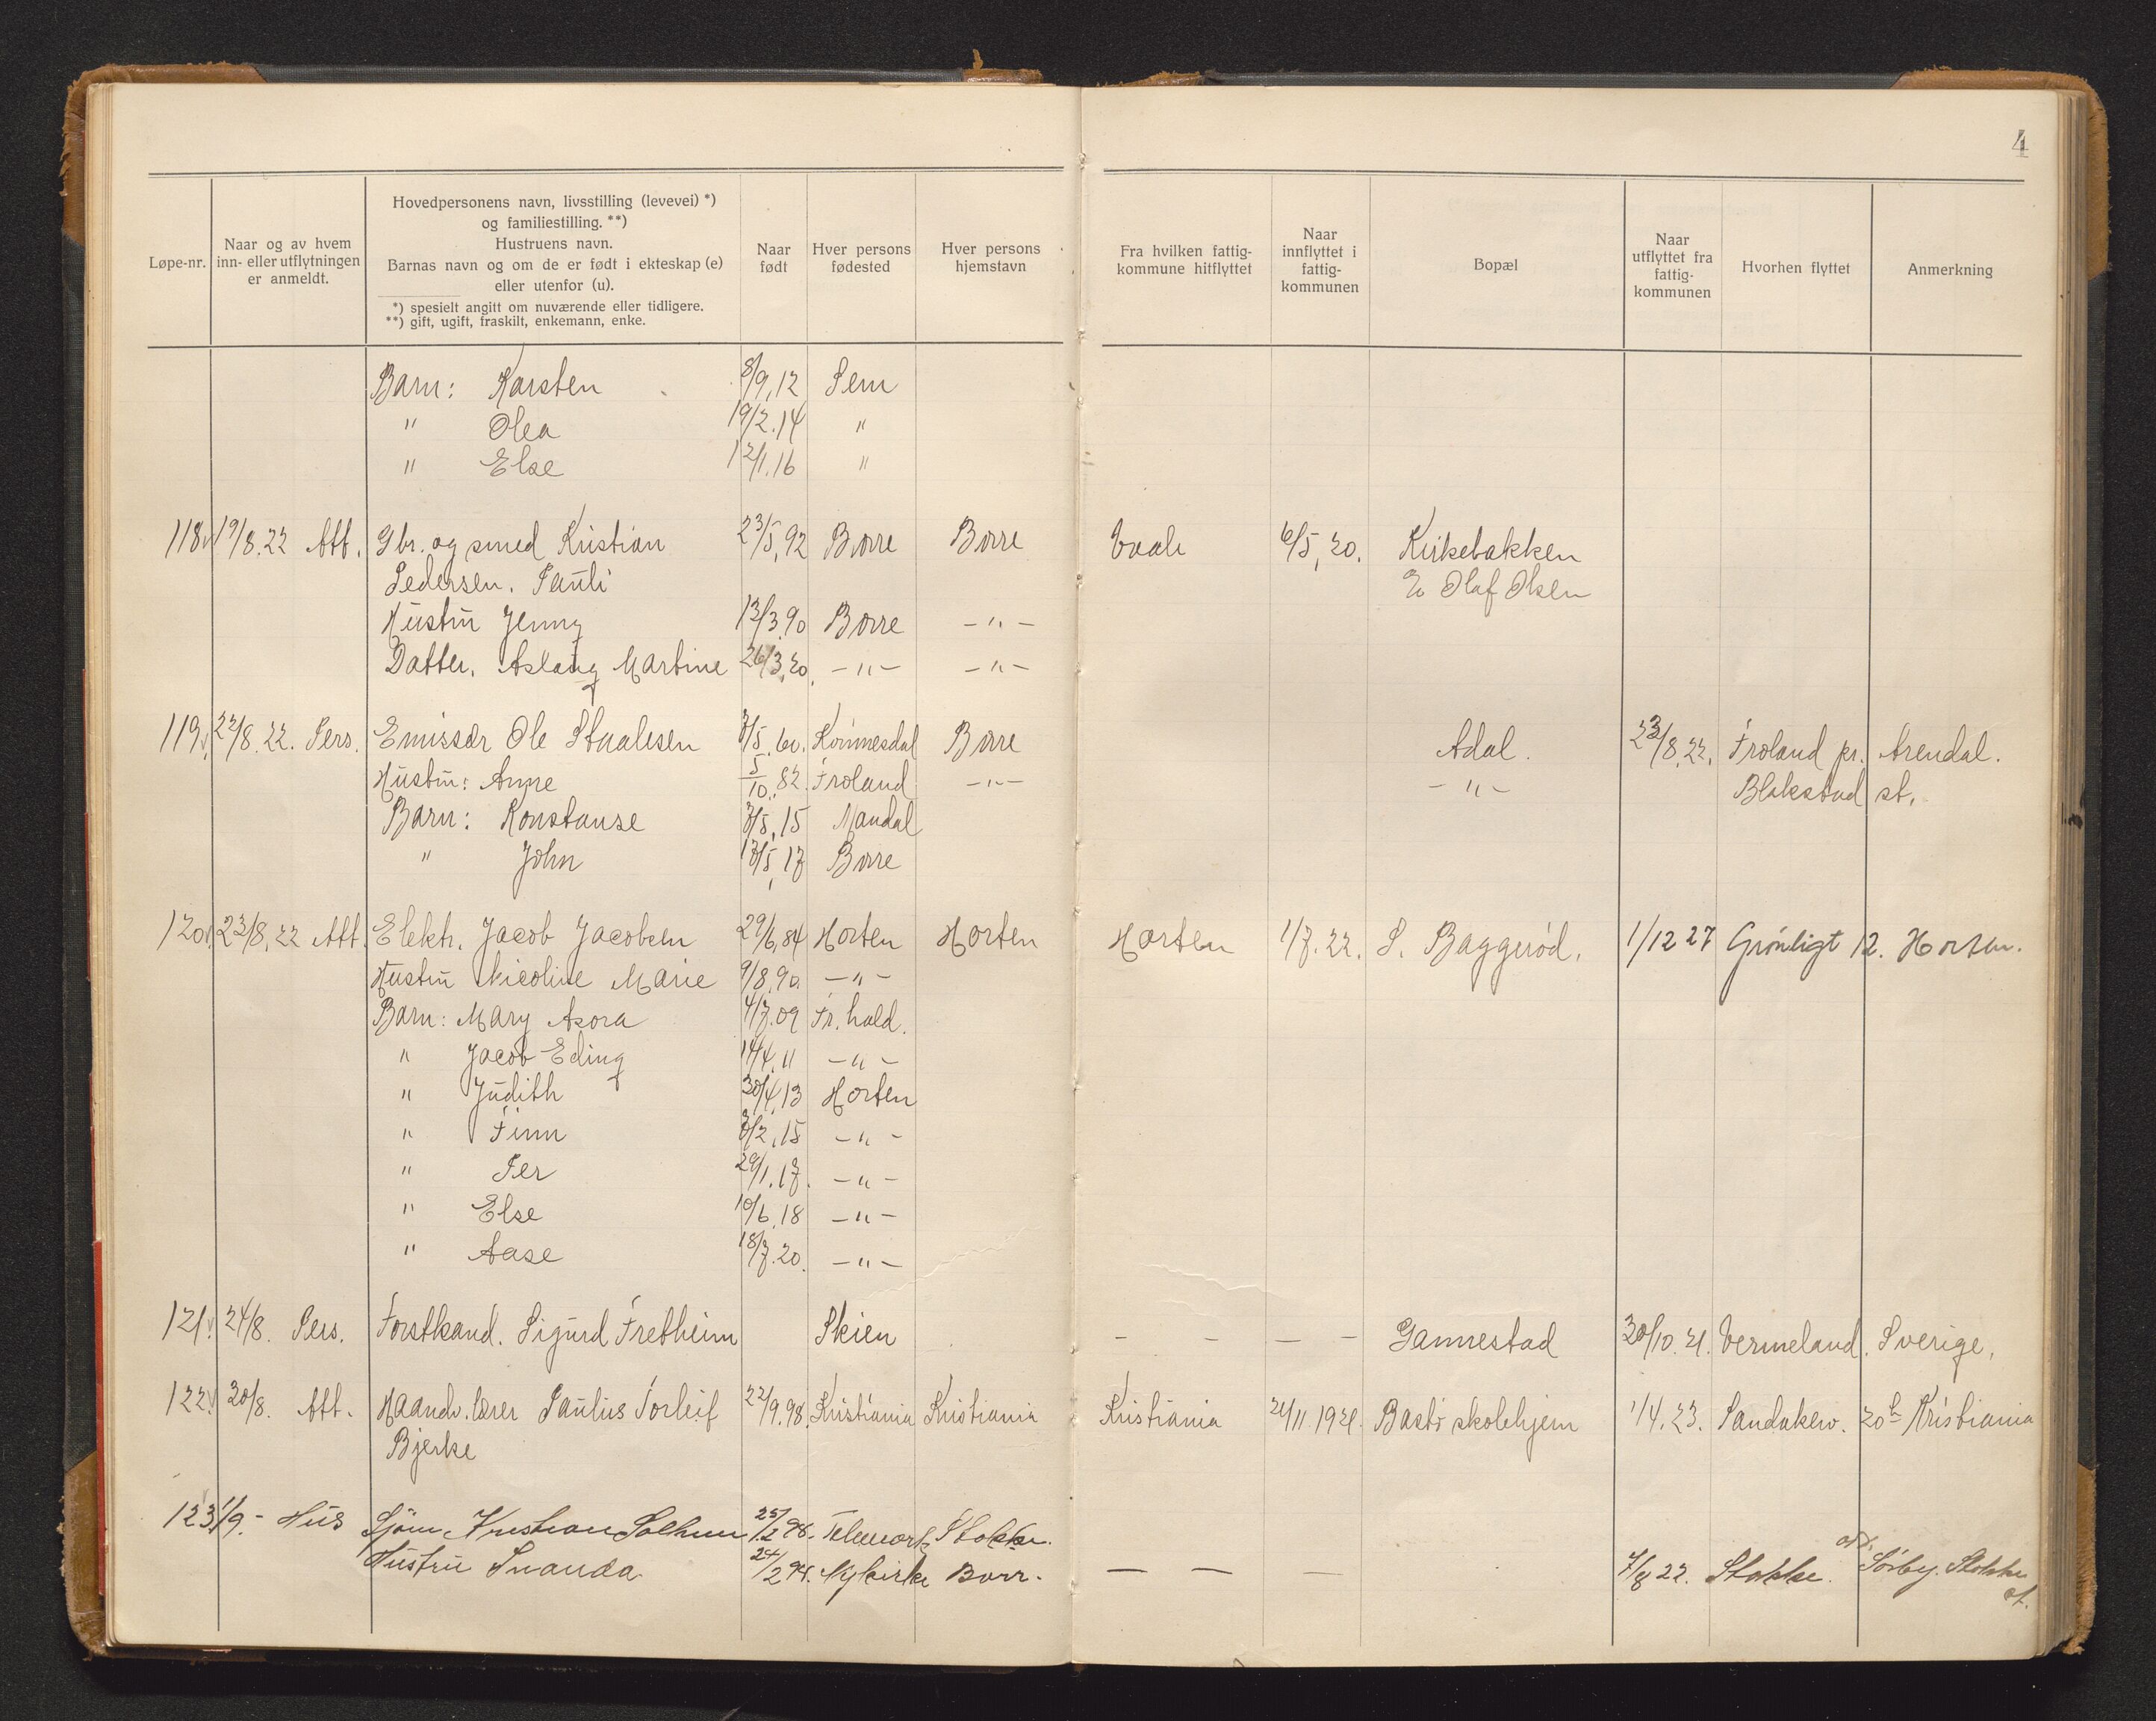 4
Løpe-nr.
Naar og av hvem inn- eller utflytningen er anmeldt.
Hovedpersonens navn, livsstilling (levevei) *)
og familiestilling. **)
Hustruens navn.
Barnas navn og om de er født i ekteskap (e)
eller utenfor (u).
*) spesielt angitt om nuværende eller tidligere.
**) gift, ugift, fraskilt, enkemann, enke.
Naar født
Hver persons fødested
Hver persons hjemstavn
Fra hvilken fattig-kommune hitflyttet
Naar innflyttet i fattig-kommunen
Bopæl
Naar utflyttet fra fattig-kommunen
Hvorhen flyttet
Anmerkning
Barn: Karsten 8/9, 12 Sem
" Olea 19/2. 14 "
" Else 12/1. 16 "
118 19/8. 22 Att. Gbr. og smed Kristian 23/5, 92 Borre Borre Vaale 6/5, 20. Kirkebakken
Pedersen. Pauli Olaf Olsen
Hustru Jenny 13/3 90 Borre -"-
Datter. Aslaug Martine 26/3, 20. -"- -"-
119 22/8. 22. Pers. Emissær Ole Staalesen Borre Adal. 23/8. 22. Froland pr. Arendal.
Hustru: Anne 5/10. 82. Froland -"- -"- Blakstad st.
Barn: Konstanse 15 Mandal
" John 17 Borre
120 23/8. 22 Att. Elektr. Jacob Jacobsen 29/6, 84 Horten Horten Horten 1/7. 22. S. Baggerød. 1/12 27 Grønligt 12. Horten.
Hustru Nicoline Marie 9/8. 90 -"-
Barn: Mary Asora 4/7. 09 Fr. hald.
" Jacob Eding 14/4. 11 -"-
" Judith 30/4. 13 Horten
" Finn 15 -"-
" Per 29/1. 17. -"-
" Else 10/6. 18 -"-
" Aase 18/7. 20. -"-
121. 24/8. Pers. Forstkand. Sigurd Fretheim Skien - - - - Gannestad 30/10. 21. Vermeland. Sverige.
122. 30/8. Att. Haandv. lærer Paulus Torleif 22/9. 98. Kristiania Kristiania Kristiania 21/11. 1921. Bastø skolehjem 1/4. 23. Sandakerv. 20 b Kristiania
Bjerke
123 1/9. - Hus Sjøm. Kristian Solhum Telemark Stokke.
Hustru 24/2 94. Nykirke Borr. - - - 7/8 22. Stokke. Sørby. Stokke
st.